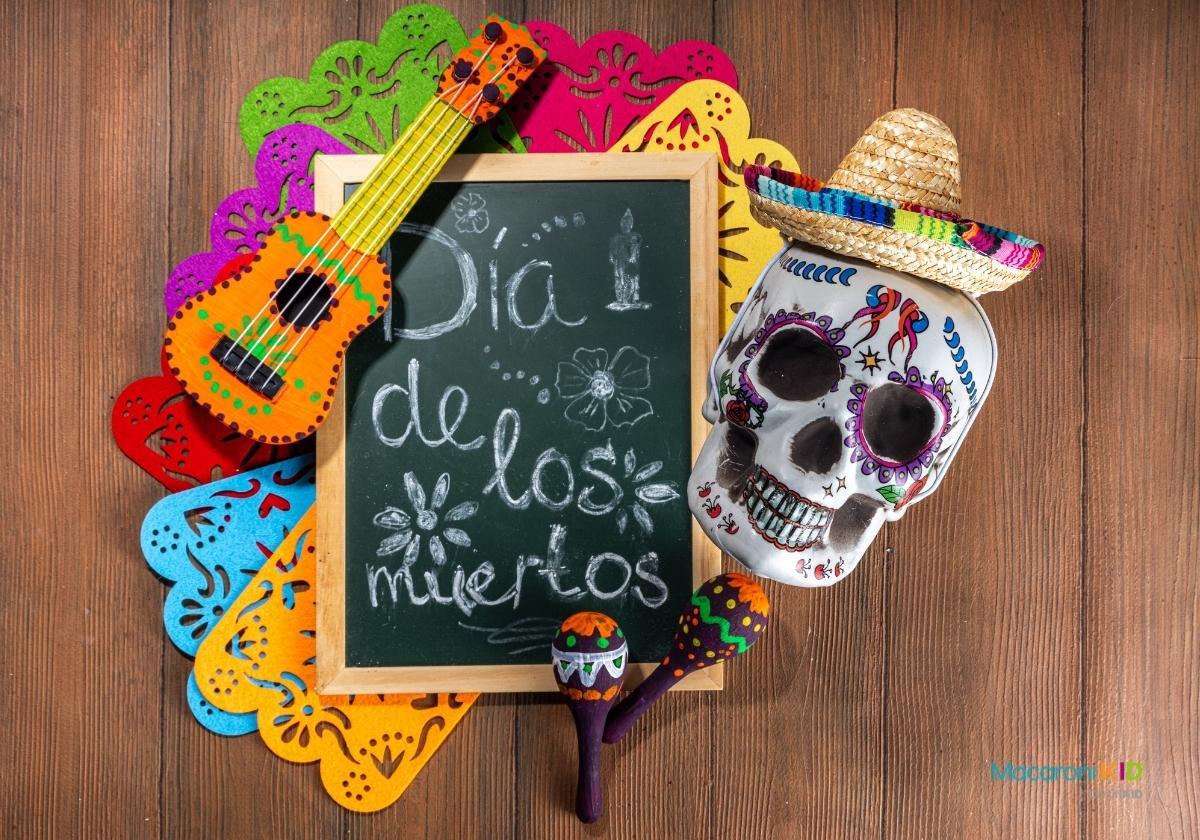 Día
de
los
muertos
Macaroni KID